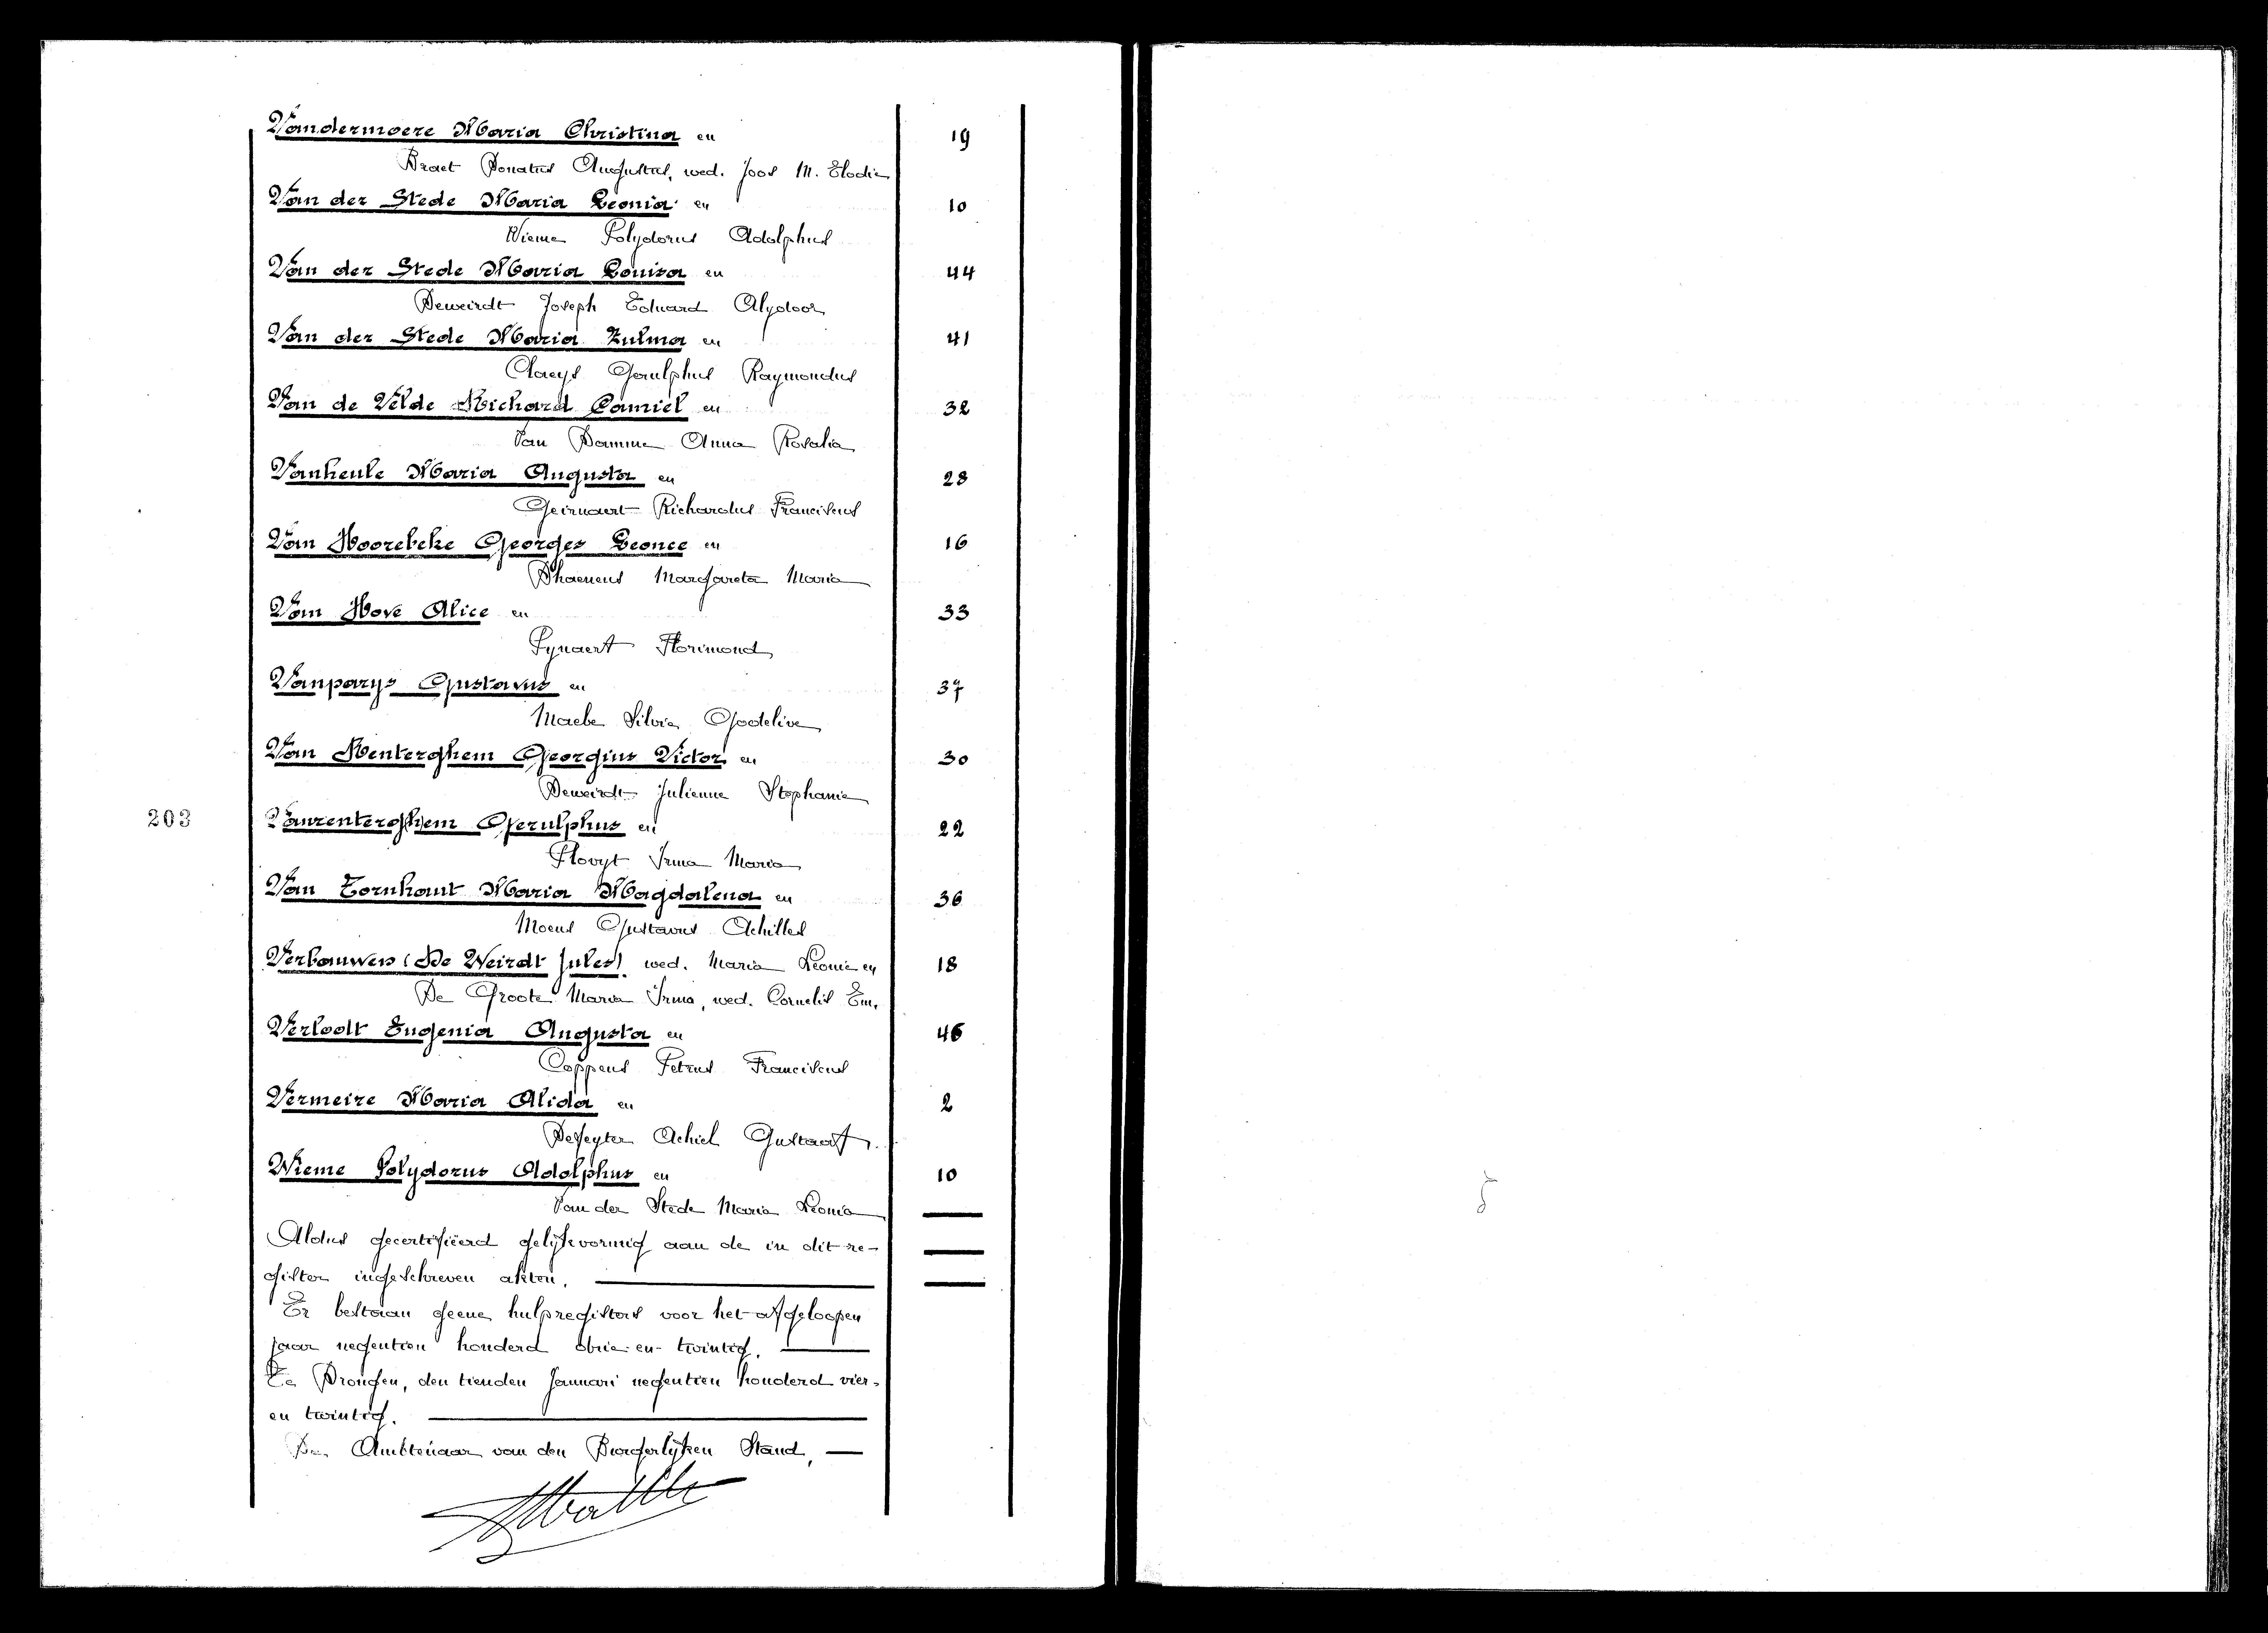 Vandermoere Maria Christina en 19
Braet Donatus Augustus, wed. Joos M. Elodie
Van der Stede Maria Leonia en 10
Wieme Polydorus Adolphus
Van der Stede Maria Louisa en 44
Deweirdt Joseph Eduard Alydoor
Van der Stede Maria Zulma en 41
Claeys Gerulphus Raymondus
Van de Velde Richard Camiel en 32
Van Damme Anna Rosalia
Vanheule Maria Augusta en 28
Geirnaert Richardus Franciscus
Van Hoorebeke Georges Leonce en 16
Dhaenens Margareta Maria
Van Hove Alice en 33
Pynaert Florimond
Vanparys Gustavus en 37
Maebe Silvie Godelive
Van Renterghem Georgius Victor en 30
Deweirdt Julienne Stephanie
203 Vanrenterghem Gerulphus en 22
Plovyt Irma Maria
Van Tornhaut Maria Magdalena en 36
Moens Gustavus Achilles
Verbauwen (De Weirdt Jules) wed. Maria Leonie en 18
De Groote Maria Irma, wed. Cornelis Em.
Verloodt Eugenia Augusta en 46
Coppens Petrus Franciscus
Vermeire Maria Alida en 2
Defeyter Achiel Gustaaf
Wieme Polydorus Adolphus en 10
Van der Stede Maria Leonia
Aldus gecertifiëerd gelijkvormig aan de in dit re-
gister ingeschreven akten.
Er bestaan geene hulpregisters voor het afgeloopen
jaar negentien honderd drie-en-twintig.
Te Drongen, den tienden Januari negentien honderd vier-
en twintig.
De Ambtenaar van den Burgerlijken Stand,